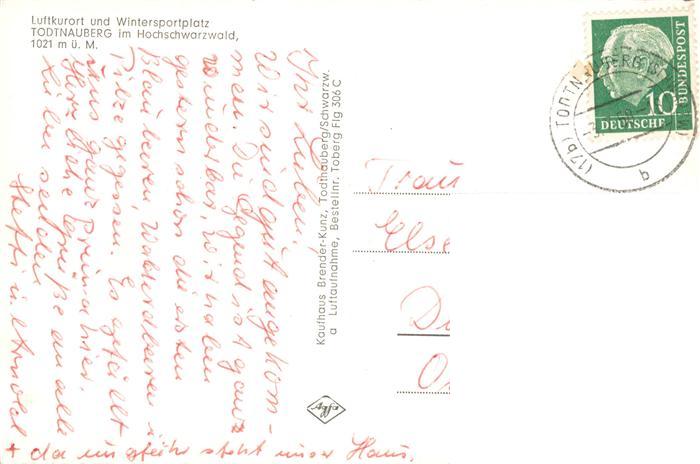 Luftkurort und Wintersportplatz
TODTNAUBERG im Hochschwarzwald,
1021 m ü. M.
Ihr Lieben!
Wir sind gut angekom-
men. Die Gegend ist ganz
wunderbar, wir haben
gestern schon die ersten
Blaubeeren, Walderdbeeren u.
Pilze gegessen. Es gefällt
uns ganz prima hier.
Herzliche Grüße an alle
Lieben senden
Steffi u. Arnold
+ da ungefähr steht unser Haus.
Kaufhaus Brender-Kunz, Todtnauberg/Schwarzw.
a Luftaufnahme, Bestellnr. Toberg Flg 306 C
Agfa
Frau
Else
DEUTSCHE
BUNDESPOST
10
(17b) TODTNAUBERG
b